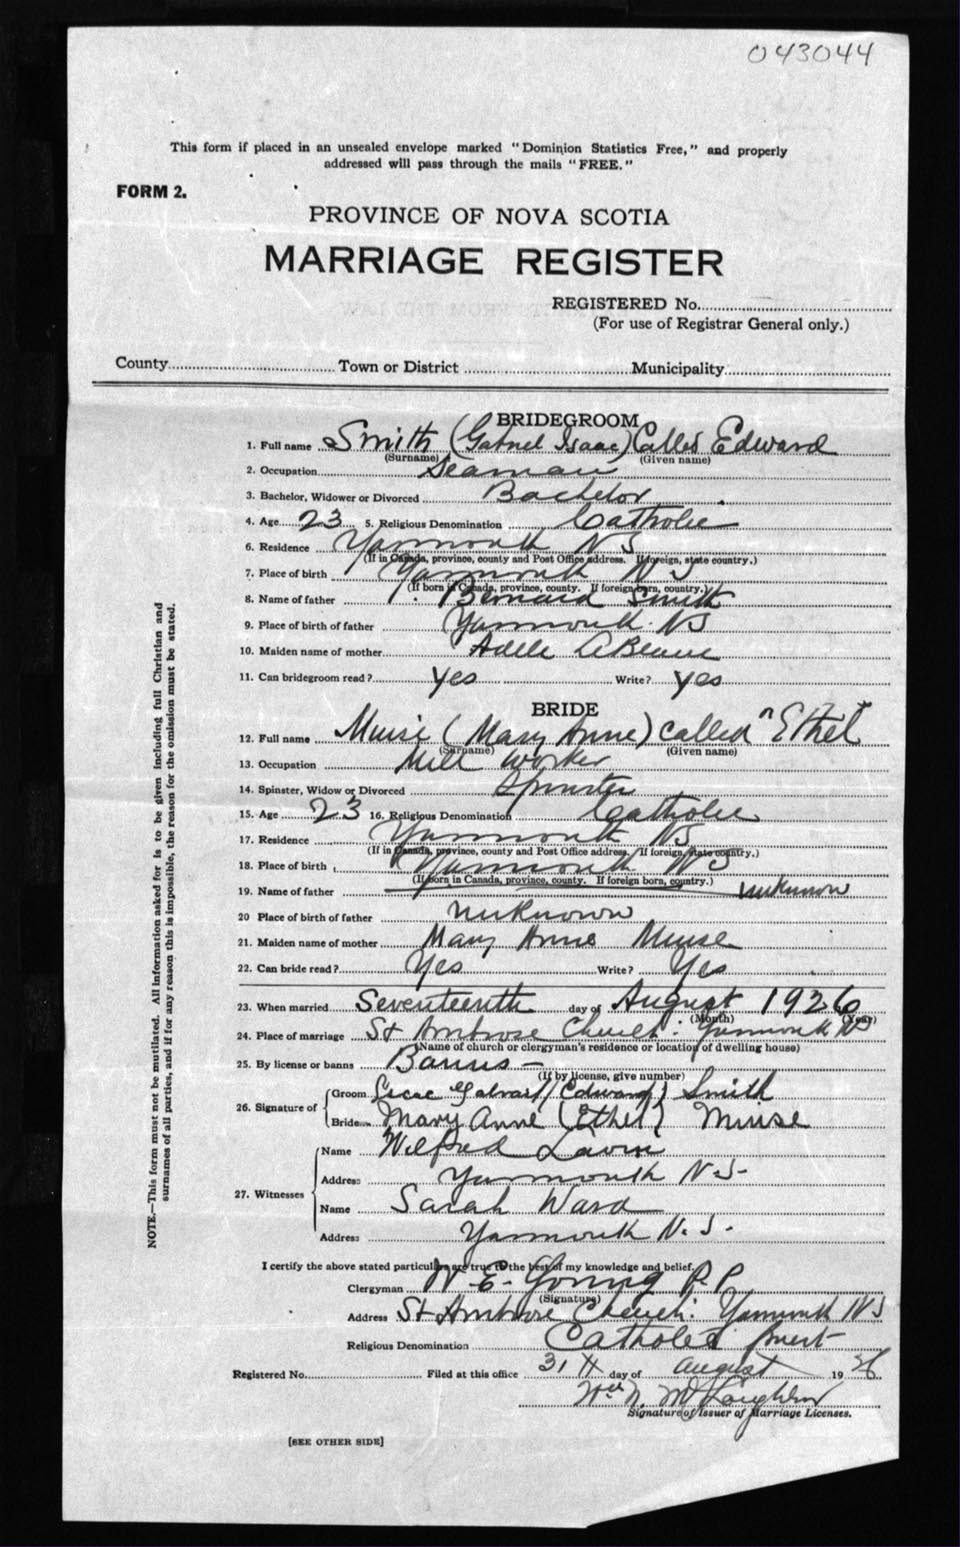 043044
This form if placed in an unsealed envelope marked "Dominion Statistics Free," and properly
addressed will pass through the mails "FREE."
FORM 2.
PROVINCE OF NOVA SCOTIA
MARRIAGE REGISTER
REGISTERED No.
(For use of Registrar General only.)
County Town or District Municipality
BRIDEGROOM
1. Full name Smith (Gabriel Isaac) Called Edward
(Surname) (Given name)
2. Occupation Seaman
3. Bachelor, Widower or Divorced Bachelor
4. Age 23 5. Religious Denomination Catholic
6. Residence Yarmouth NS
(If in Canada, province, county and Post Office address. If foreign, state country.)
7. Place of birth Yarmouth N.S
(If born in Canada, province, county. If foreign born, country.)
8. Name of father Bernard Smith
9. Place of birth of father Yarmouth NS
10. Maiden name of mother Adele
11. Can bridegroom read? Yes Write? Yes
BRIDE
12. Full name Muise (Mary Anne) called "Ethel
(Surname) (Given name)
13. Occupation Mill Worker
14. Spinster, Widow or Divorced Spinster
15. Age 23 16. Religious Denomination Catholic
17. Residence Yarmouth NS
(If in Canada, province, county and Post Office address. If foreign, state country.)
18. Place of birth Yarmouth NS
(If born in Canada, province, county. If foreign born, country.)
19. Name of father unknown
20 Place of birth of father unknown
21. Maiden name of mother Mary Anne Muise
22. Can bride read? Yes Write? Yes
23. When married Seventeenth day of August 1926
(Month) (Year)
24. Place of marriage St Ambrose Church. Yarmouth NS
(Name of church or clergyman's residence or location of dwelling house)
25. By license or banns Banns –
(If by license, give number)
26. Signature of Groom (Edward) Smith
Bride Mary Anne (Ethel) Muise
27. Witnesses
Name Wilfred
Address Yarmouth N.S.
Name Sarah Ward
Address Yarmouth N.S.
I certify the above stated particulars are true to the best of my knowledge and belief.
Clergyman W E. Young P.P.
(Signature)
Address St Ambrose Church. Yarmouth NS
Religious Denomination Catholic Priest
Registered No. Filed at this office 31st day of August 1926
Wm N. McLaughlin
Signature of Issuer of Marriage Licenses.
[SEE OTHER SIDE]
NOTE.—This form must not be mutilated. All information asked for is to be given including full Christian and
surnames of all parties, and if for any reason this is impossible, the reason for the omission must be stated.